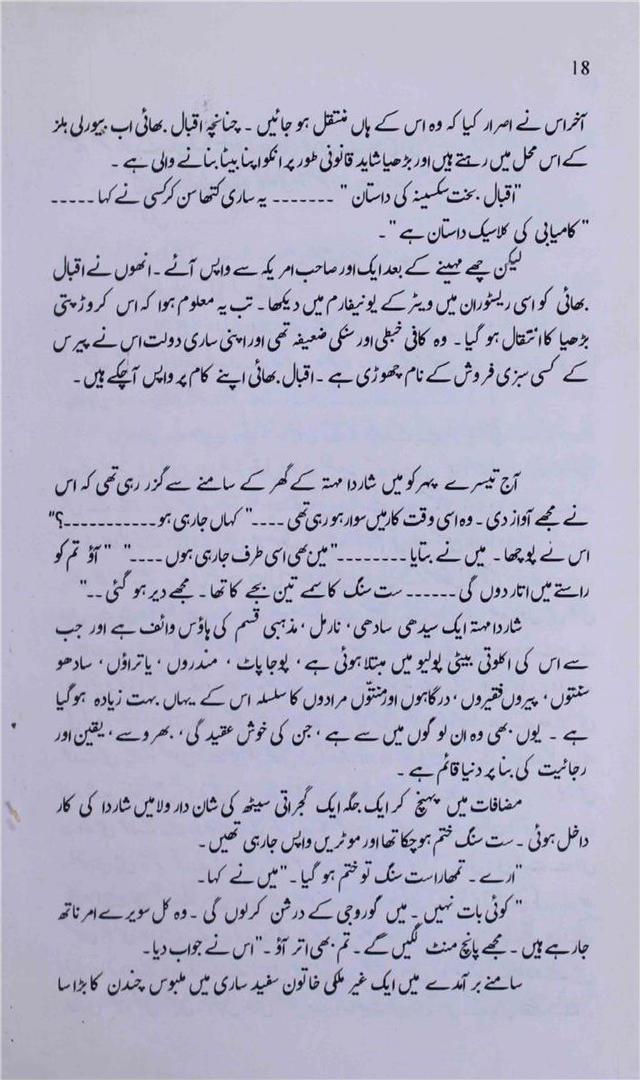 18
آخر اس نے اصرار کیا کہ وہ اس کے ہاں منتقل ہو جائیں ۔ چنانچہ اقبال بھائی اب بیورلی ہلز
کے اس محل میں رہتے ہیں اور بڑھیا شاید قانونی طور پر انکو اپنا بیٹا بنانے والی ہے ۔
"اقبال بخت سکسینہ کی داستان" ------- یہ ساری کتھا سن کر کسی نے کہا -----
"کامیابی کی کلاسیک داستان ہے" ۔
لیکن چھے مہینے کے بعد ایک اور صاحب امریکہ سے واپس آئے ۔ انھوں نے اقبال
بھائی کو اسی ریسٹوران میں ویٹر کے یونیفارم میں دیکھا ۔ تب یہ معلوم ہوا کہ اس کروڑ پتی
بڑھیا کا انتقال ہو گیا ۔ وہ کافی خبطی اور سنکی ضعیفہ تھی اور اپنی ساری دولت اس نے پیرس
کے کسی سبزی فروش کے نام چھوڑی ہے ۔ اقبال بھائی اپنے کام پر واپس آچکے ہیں ۔
آج تیسرے پہر کو میں شاردا مہتہ کے گھر کے سامنے سے گزر رہی تھی کہ اس
نے مجھے آواز دی ۔ وہ اسی وقت کار میں سوار ہو رہی تھی ----" کہاں جا رہی ہو -----------؟"
اس نے پوچھا ۔ میں نے بتایا ---------"میں بھی اسی طرف جا رہی ہوں ----" "آؤ تم کو
راستے میں اتار دوں گی ------ ست سنگ کا سمے تین بجے کا تھا ۔ مجھے دیر ہو گئی --"
شاردا مہتہ ایک سیدھی سادھی، نارمل، مذہبی قسم کی ہاؤس وائف ہے اور جب
سے اس کی اکلوتی بیٹی پولیو میں مبتلا ہوئی ہے، پوجا پاٹ، مندروں، یاتراؤں، سادھو
سنتوں، پیروں فقیروں، درگاہوں اور منتّوں مرادوں کا سلسلہ اس کے یہاں بہت زیادہ ہو گیا
ہے ۔ یوں بھی وہ ان لوگوں میں سے ہے، جن کی خوش عقیدگی، بھروسے، یقین اور
رجائیت کی بنا پر دنیا قائم ہے ۔
مضافات میں پہنچ کر ایک جگہ ایک گجراتی سیٹھ کی شان دار ولا میں شاردا کی کار
داخل ہوئی ۔ ست سنگ ختم ہو چکا تھا اور موٹریں واپس جا رہی تھیں ۔
"ارے ۔ تمھارا ست سنگ تو ختم ہو گیا ۔" میں نے کہا ۔
"کوئی بات نہیں ۔ میں گورو جی کے درشن کرلوں گی ۔ وہ کل سویرے امر ناتھ
جا رہے ہیں ۔ مجھے پانچ منٹ لگیں گے ۔ تم بھی اتر آؤ ۔" اس نے جواب دیا ۔
سامنے برآمدے میں ایک غیر ملکی خاتون سفید ساری میں ملبوس چندن کا بڑا سا